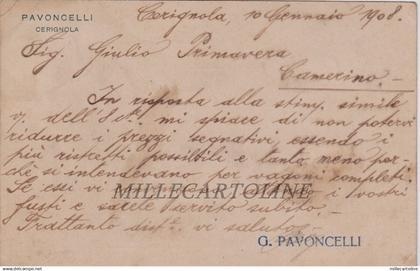 PAVONCELLI
CERIGNOLA
Cerignola, 10 Gennaio 1908.
Sig. Giulio Primavera
Camerino.-
In risposta alla stim. simile
dell' mi spiace di non potervi
ridurre i prezzi segnativi, essendo i
più ristretti possibili e tanto meno per-
chè si intendevano per vagoni completi.
Se essi vi i vostri
fusti e sarete servito subito.-
Trattanto dist.e vi saluto.-
MILLECARTOLINE
G. PAVONCELLI